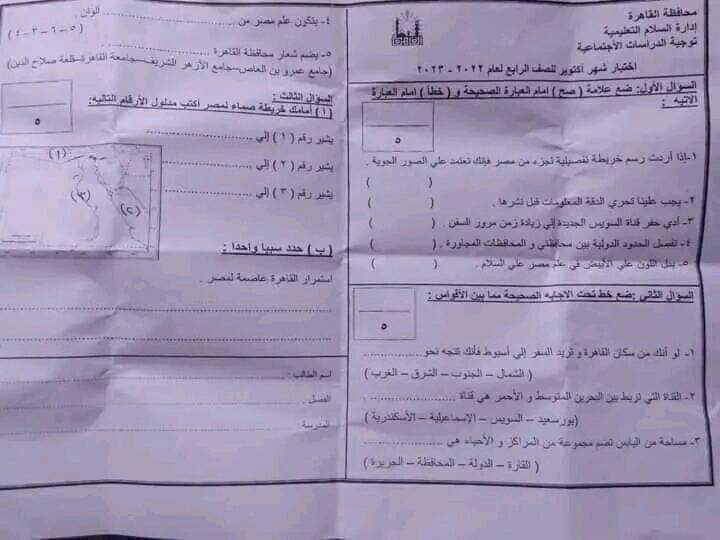 محافظة القاهرة
إدارة السلام التعليمية
توجية الدراسات الأجتماعية
اختبار شهر أكتوبر للصف الرابع لعام ٢٠٢٢ - ٢٠٢٣
السؤال الأول: ضع علامة ( صح ) امام العبارة الصحيحة و ( خطأ ) امام العبارة
الاتيه :
٥
١-إذا أردت رسم خريطة تفصيلية لجزء من مصر فإنك تعتمد علي الصور الجوية .
( )
٢- يجب علينا تحري الدقة المعلومات قبل نشرها . ( )
٣- أدي حفر قناة السويس الجديدة إلي زيادة زمن مرور السفن . ( )
٤- تفصل الحدود الدولية بين محافظتي و المحافظات المجاورة . ( )
٥- يدل اللون علي الأبيض في علم مصر علي السلام . ( )
السؤال الثاني :ضع خط تحت الاجابه الصحيحة مما بين الأقواس :
٥
١- لو أنك من سكان القاهرة و تريد السفر إلي أسيوط فأنك تتجه نحو............
( الشمال – الجنوب – الشرق – الغرب )
٢- القناة التي تربط بين البحرين المتوسط و الأحمر هي قناة ....................
(بورسعيد – السويس – الإسماعيلية – الأسكندرية )
٣- مساحة من اليابس تضم مجموعة من المراكز و الأحياء هي ..................
( القارة – الدولة – المحافظة – الجزيرة )
٤- يتكون علم مصر من .................... الوان .
( ٥ – ٦ – ٣ – ٤ )
٥- يضم شعار محافظة القاهرة ....................
(جامع عمرو بن العاص–جامع الأزهر الشريف–جامعة القاهرة–قلعة صلاح الدين)
السؤال الثالث :
٥
( أ ) أمامك خريطة صماء لمصر أكتب مدلول الأرقام التاليه:
يشير رقم ( ١ ) إلي ....................
يشير رقم ( ٢ ) إلي ....................
يشير رقم ( ٣ ) إلي ....................
(١)
(٣)
(٢)
( ب ) حدد سببا واحدا :
استمرار القاهرة عاصمة لمصر .
اسم الطالب : ....................
الفصل : ....................
المدرسة : ....................